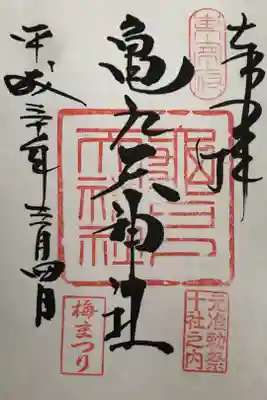 奉拝
亀戸天神社
平成三十年三月四日
元准勅祭
十社之内
梅まつり